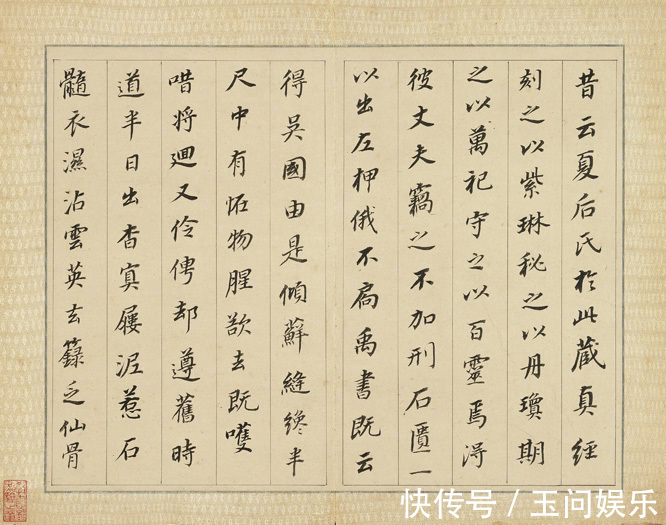 昔云夏后氏於此蔵真經
刻之以紫琳秘之以丹瓊期
之以萬祀守之以百靈焉淂
彼丈夫竊之不加刑石匱一
以出左神俄不扃禹書既云
得吳國由是傾蘚縫纔半
尺中有怪物腥欲去既嚄
唶將迴又伶俜却遵舊時
道半日出杳冥屨泥惹石
髓衣濕沾雲英玄籙乏仙骨
快传号 / 玉问娱乐